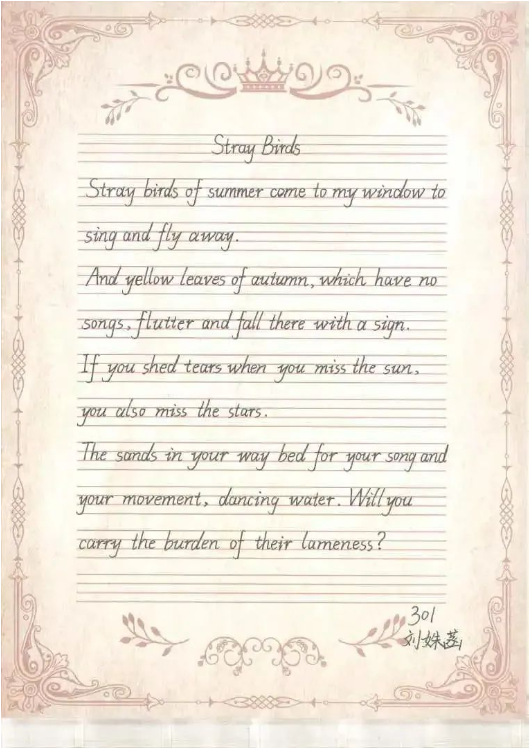 Stray Birds
Stray birds of summer come to my window to
sing and fly away.
And yellow leaves of autumn, which have no
songs, flutter and fall there with a sign.
If you shed tears when you miss the sun,
you also miss the stars.
The sands in your way bed for your song and
your movement, dancing water. Will you
carry the burden of their lameness?
301
刘姝菡